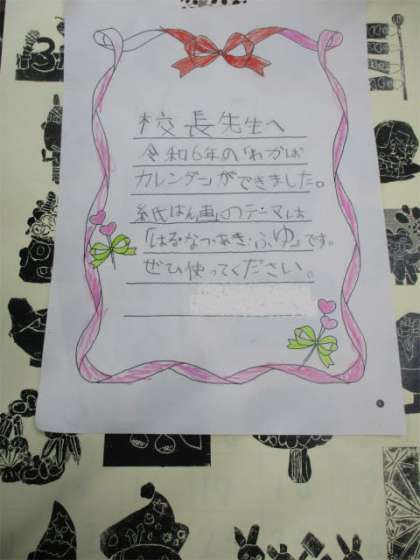 校長先生へ
令和6年の「わかば
カレンダー」ができました。
「紙はん画」のテーマは
「はる・なつ・あき・ふゆ」です。
ぜひ使ってください。